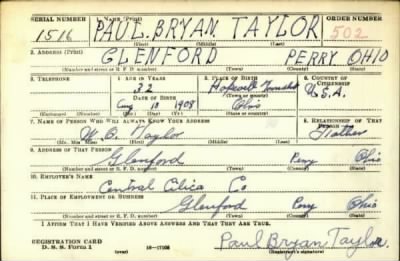 SERIAL NUMBER 1. NAME (Print) ORDER NUMBER
1516 PAUL BRYAN TAYLOR 502
(First) (Middle) (Last)
2. ADDRESS (Print)
GLENFORD PERRY OHIO
(Number and street or R. F. D. number) (Town) (County) (State)
3. TELEPHONE 4. AGE IN YEARS 5. PLACE OF BIRTH 6. COUNTRY OF CITIZENSHIP
32 Hopewell Township
DATE OF BIRTH (Town or county) U.S.A.
Aug 18 1908 Ohio
(Exchange) (Number) (Mo.) (Day) (Yr.) (State or country)
7. NAME OF PERSON WHO WILL ALWAYS KNOW YOUR ADDRESS 8. RELATIONSHIP OF THAT PERSON
W. C. Taylor Father
(Mr., Mrs., Miss) (First) (Middle) (Last)
9. ADDRESS OF THAT PERSON
Glenford Perry Ohio
(Number and street or R. F. D. number) (Town) (County) (State)
10. EMPLOYER'S NAME
Central Cilica Co
11. PLACE OF EMPLOYMENT OR BUSINESS
Glenford Perry Ohio
(Number and street or R. F. D. number) (Town) (County) (State)
I AFFIRM THAT I HAVE VERIFIED ABOVE ANSWERS AND THAT THEY ARE TRUE.
REGISTRATION CARD
D. S. S. Form 1 (over) Paul Bryan Taylor
(Registrant's signature)